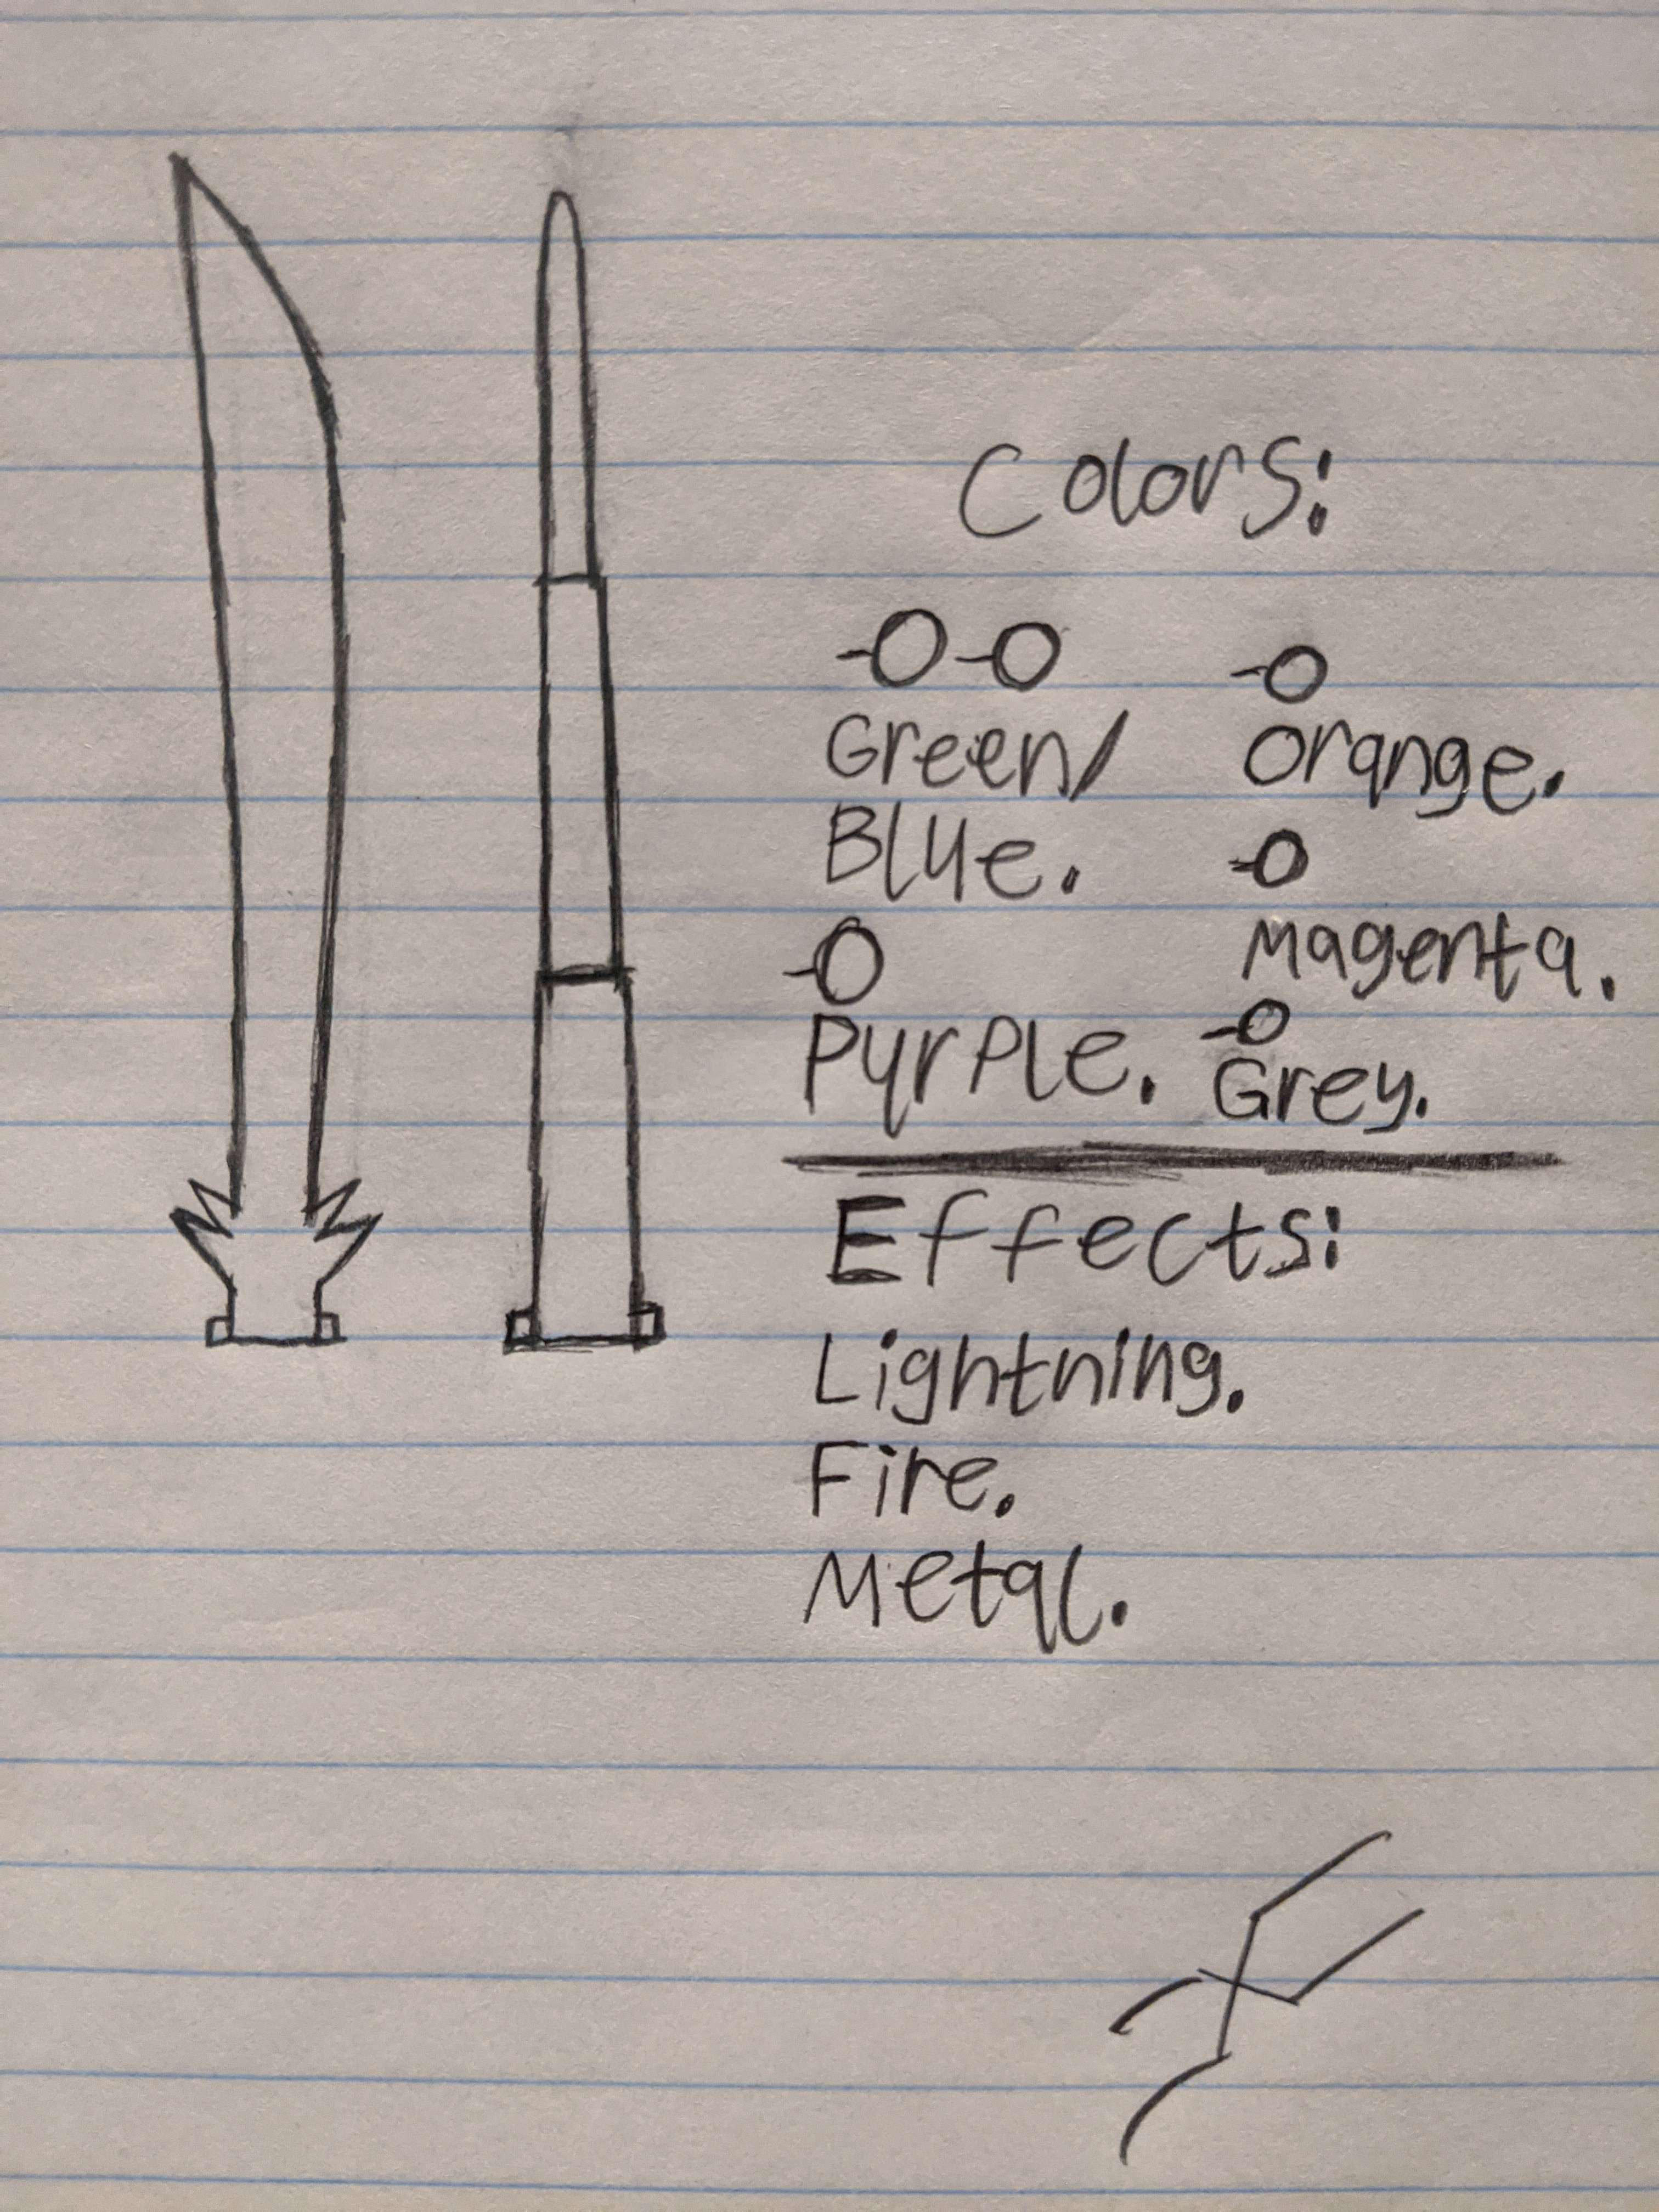 Colors:
-O-O
Green/
Blue.
-O
Purple.
-O
Orange.
-O
Magenta.
-O
Grey.
Effects:
Lightning.
Fire.
Metal.